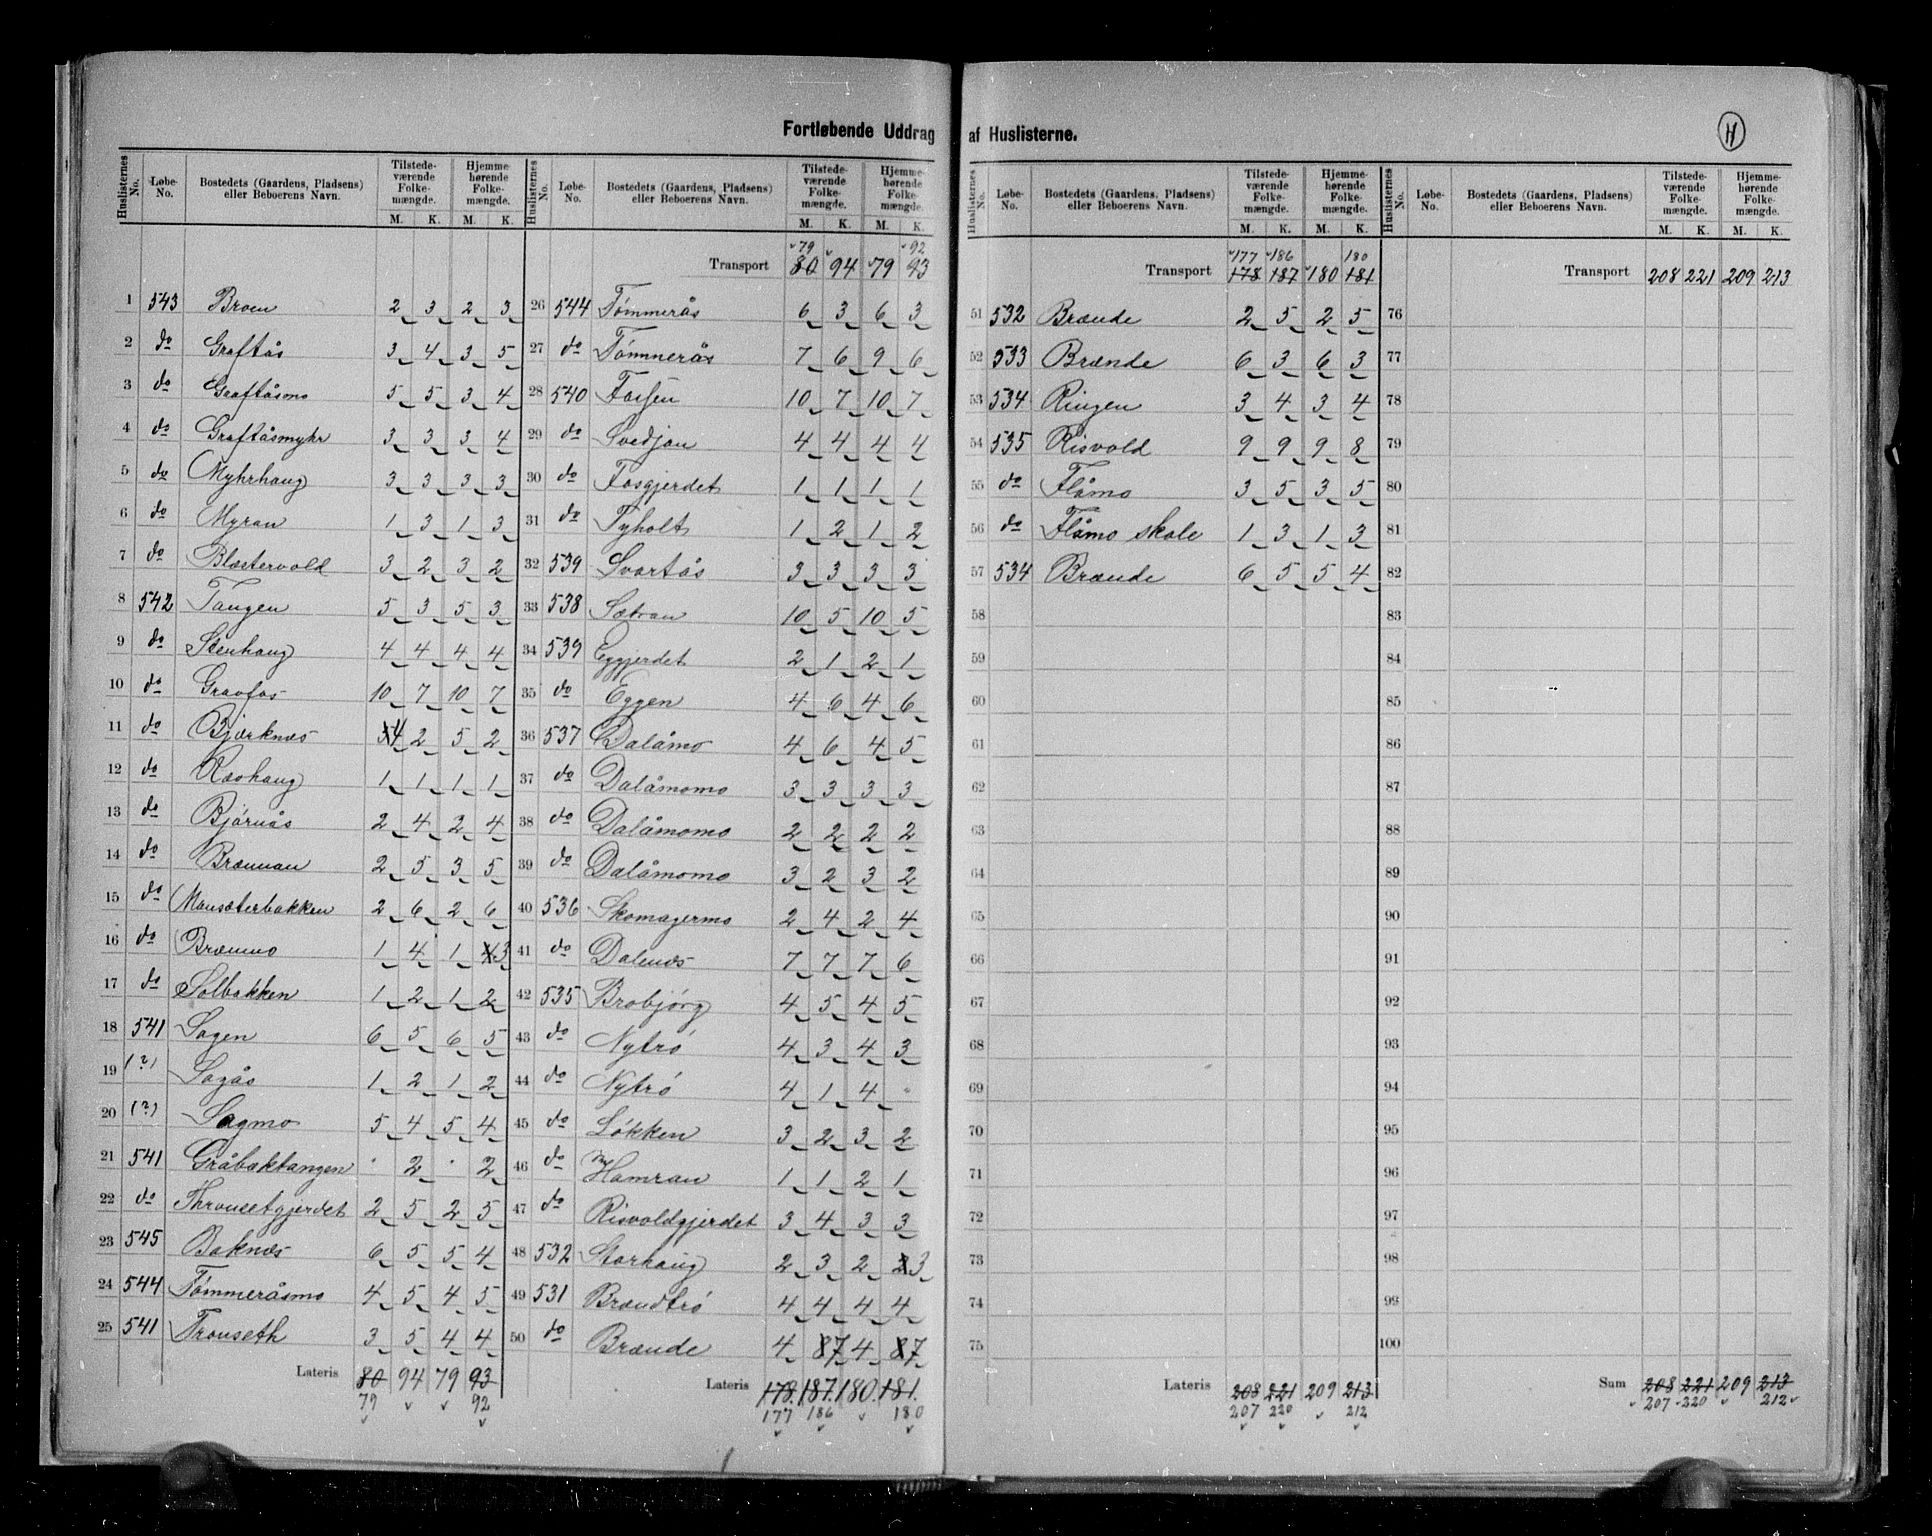 Fortløbende Uddrag af Huslisterne.
11
Huslisternes No. Løbe-No. Bostedets (Gaardens, Pladsens) eller Beboerens Navn. Tilstedeværende Folkemængde. M. K. Hjemmehørende Folkemængde. M. K.
1 543 Broen 2 3 2 3
2 do Graftås 3 4 3 5
3 do Graftåsmo 5 5 3 4
4 do Graftåsmyhr 3 3 3 4
5 do Myhrhaug 3 3 3 3
6 do Myran 1 3 1 3
7 do Blæstervold 3 2 3 2
8 542 Tangen 5 3 5 3
9 do Stenhaug 4 4 4 4
10 do Gravfos 10 7 10 7
11 do Bjærknæs 4 2 5 2
12 do Ravhaug 1 1 1 1
13 do Bjørnås 2 4 2 4
14 do Brænnan 2 5 3 5
15 do Mansæterbakken 2 6 2 6
16 do Brænmo 1 4 1 3
17 do Solbakken 1 2 1 2
18 541 Sagen 6 5 6 5
19 (?) Sagås 1 2 1 2
20 (?) Sagmo 5 4 5 4
21 541 Gråbæktangen " 2 " 2
22 do Thronsetgjerdet 2 5 2 5
23 545 Baknæs 6 5 5 4
24 544 Tømmeråsmo 4 5 4 5
25 541 Tronseth 3 5 4 4
Lateris 80 94 79 93
79 92
Huslisternes No. Løbe-No. Bostedets (Gaardens, Pladsens) eller Beboerens Navn. Tilstedeværende Folkemængde. M. K. Hjemmehørende Folkemængde. M. K.
79 92
Transport 80 94 79 93
26 544 Tømmerås 6 3 6 3
27 do Tømmerås 7 6 9 6
28 540 Fossen 10 7 10 7
29 do Svedjan 4 4 4 4
30 do Fosgjerdet 1 1 1 1
31 do Tyholt 1 2 1 2
32 539 Svartås 3 3 3 3
33 538 Sætran 10 5 10 5
34 539 Eggjerdet 2 1 2 1
35 do Eggen 4 6 4 6
36 537 Dalåmo 4 6 4 5
37 do Dalåmomo 3 3 3 3
38 do Dalåmomo 2 2 2 2
39 do Dalåmomo 3 2 3 2
40 536 Skomagermo 2 4 2 4
41 do Dalenæs 7 7 7 6
42 535 Brobjørg 4 5 4 5
43 do Nytrø 4 3 4 3
44 do Nytrø 4 1 4 "
45 do Løkken 3 2 3 2
46 do Hamran 1 1 2 1
47 do Risvoldgjerdet 3 4 3 3
48 532 Storhaug 2 3 2 3
49 531 Brændtrø 4 4 4 4
50 do Brænde 4 7 4 7
Lateris 178. 187. 180. 181.
177 186 180
Huslisternes No. Løbe-No. Bostedets (Gaardens, Pladsens) eller Beboerens Navn. Tilstedeværende Folkemængde. M. K. Hjemmehørende Folkemængde. M. K.
177 186 180
Transport 178 187 180 181
51 532 Brænde 2 5 2 5
52 533 Brænde 6 3 6 3
53 534 Ringen 3 4 3 4
54 535 Risvold 9 9 9 8
55 do Flåmo 3 5 3 5
56 do Flåmo skole 1 3 1 3
57 534 Brænde 6 5 5 4
58
59
60
61
62
63
64
65
66
67
68
69
70
71
72
73
74
75
Lateris 208 221 209 213
207 220 212
Huslisternes No. Løbe-No. Bostedets (Gaardens, Pladsens) eller Beboerens Navn. Tilstedeværende Folkemængde. M. K. Hjemmehørende Folkemængde. M. K.
Transport 208 221 209 213
76
77
78
79
80
81
82
83
84
85
86
87
88
89
90
91
92
93
94
95
96
97
98
99
100
Sum 208 221 209 213
207 220 212